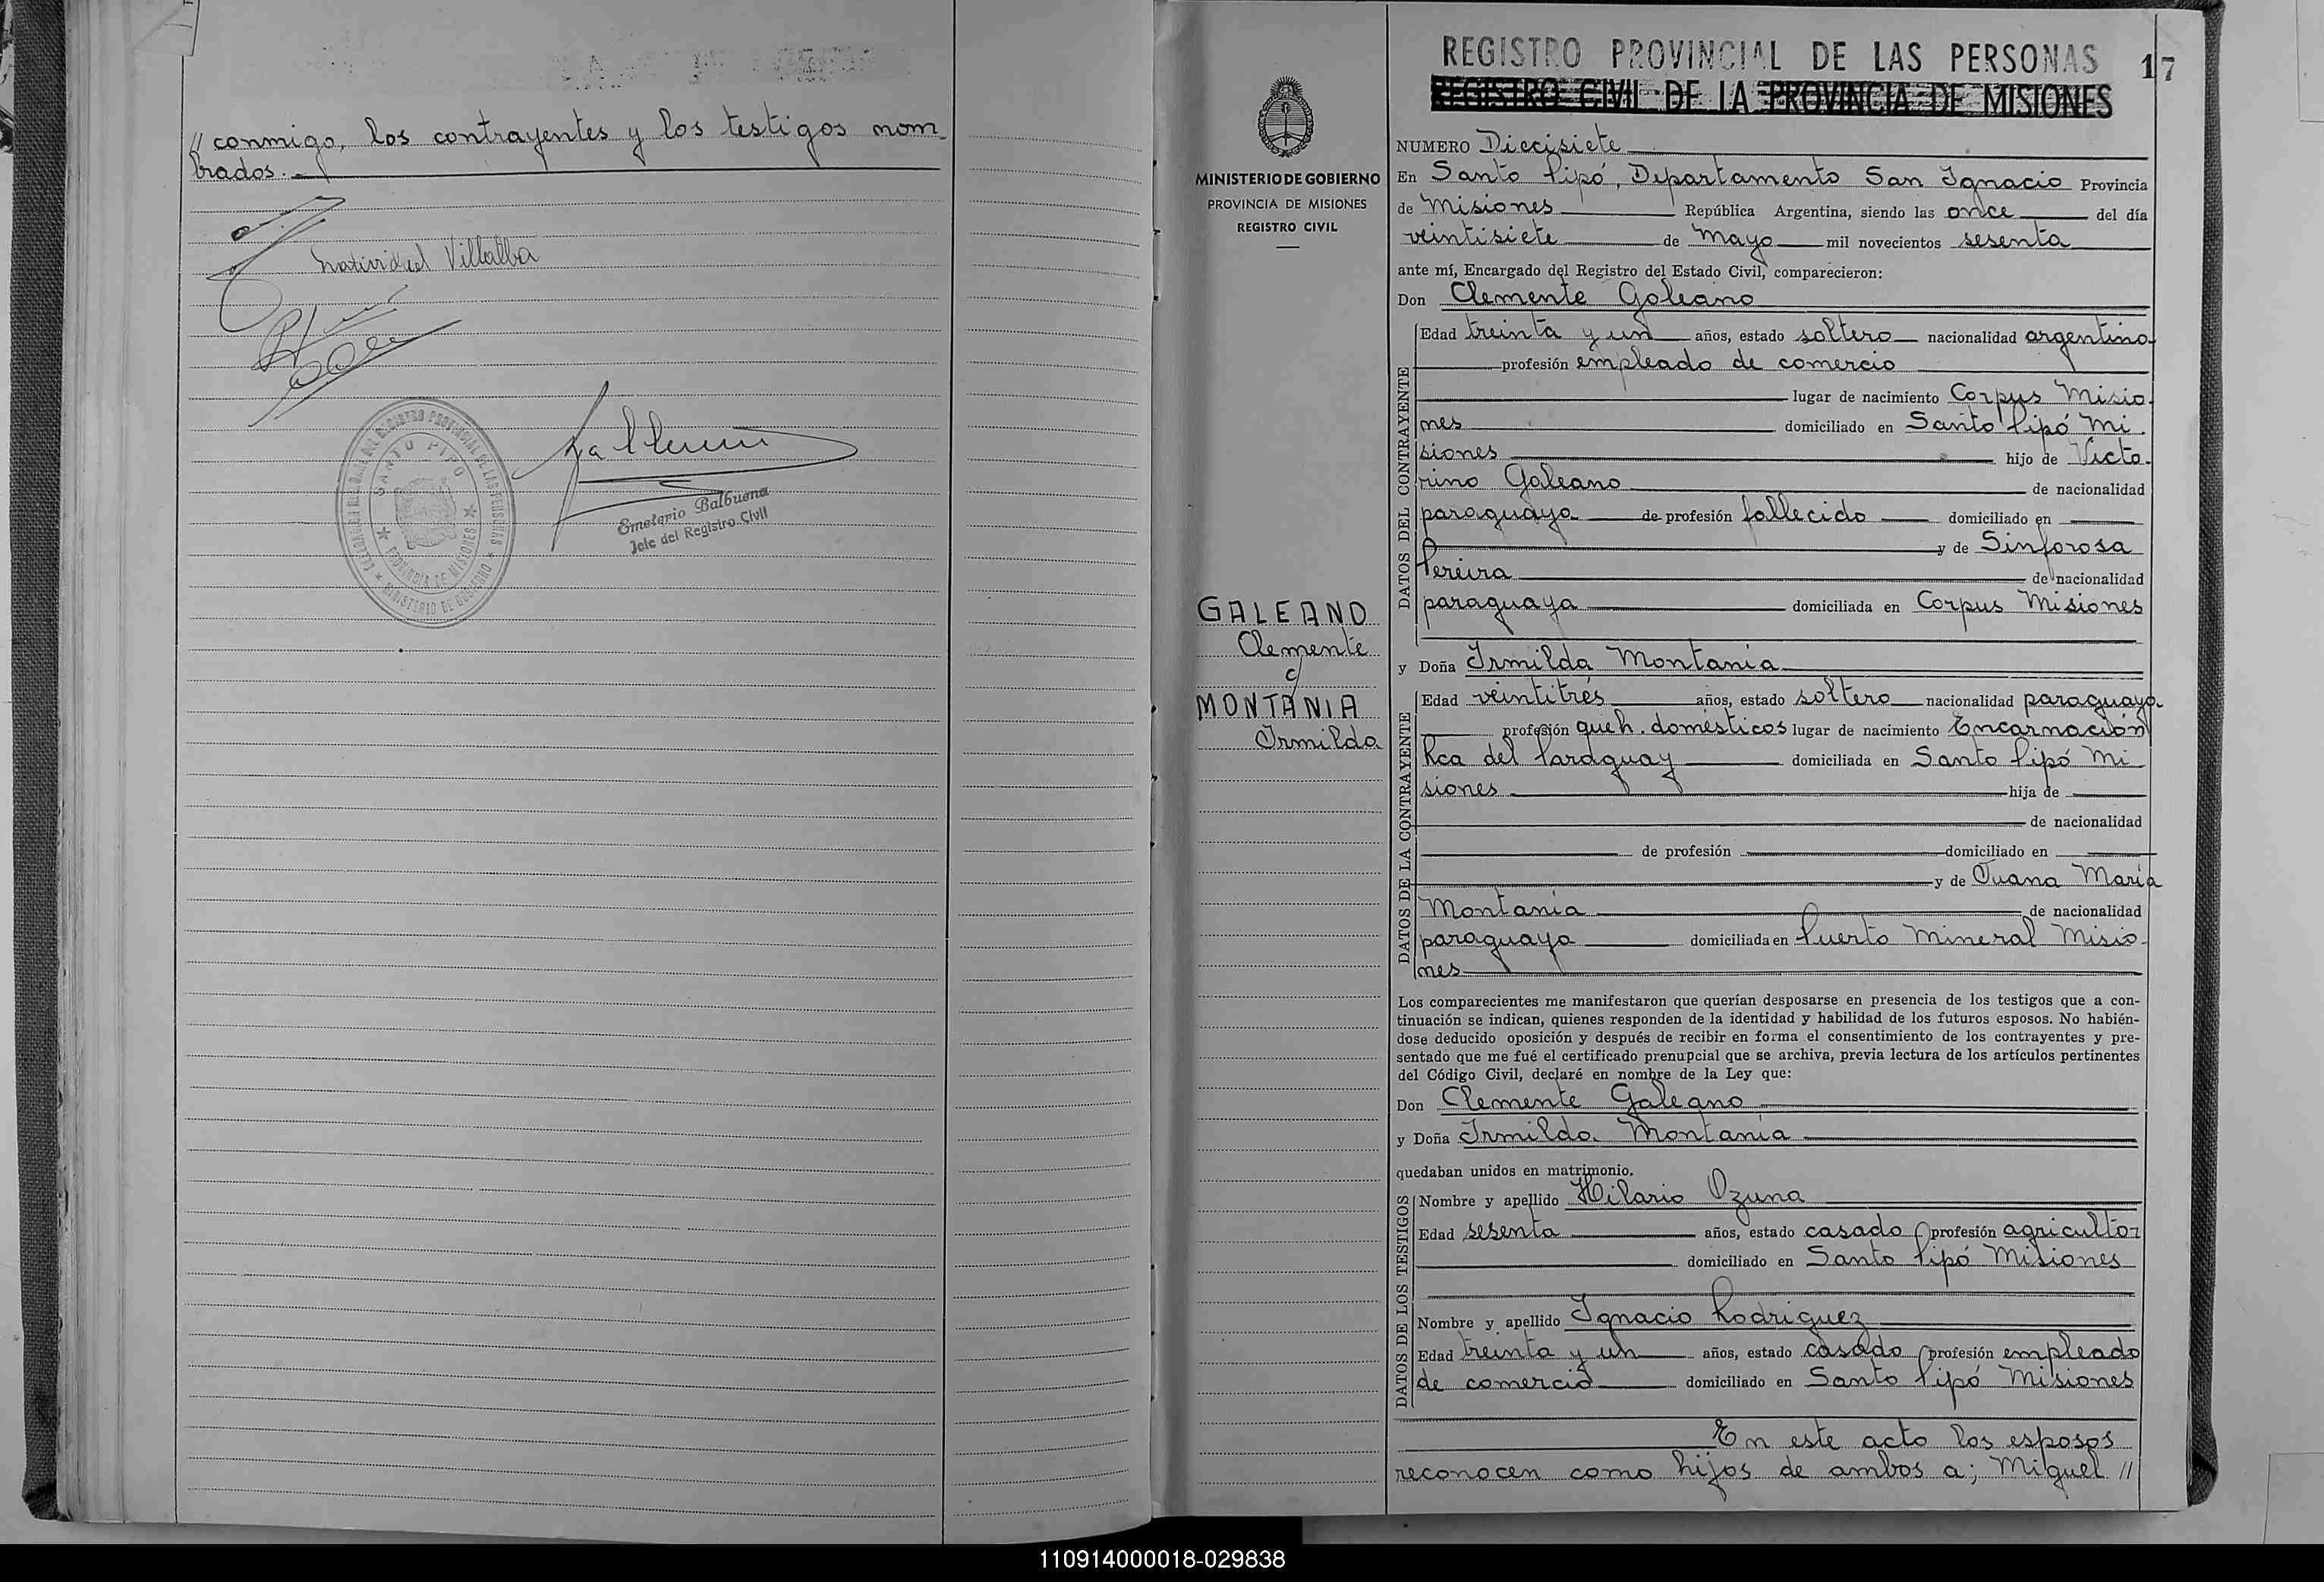 // conmigo, los contrayentes y los testigos nom-
brados.-
Natividad Villalba
SANTO PIPO
PROVINCIA DE MISIONES
MINISTERIO DE GOBIERNO
Emeterio Balbuena
Jefe del Registro Civil
REGISTRO PROVINCIAL DE LAS PERSONAS
17
REGISTRO CIVIL DE LA PROVINCIA DE MISIONES
MINISTERIO DE GOBIERNO
PROVINCIA DE MISIONES
REGISTRO CIVIL
GALEANO
Clemente
c/
MONTANIA
Irmilda
NUMERO Diecisiete
En Santo Pipó, Departamento San Ignacio Provincia
de Misiones República Argentina, siendo las once del día
veintisiete de Mayo mil novecientos sesenta
ante mí, Encargado del Registro del Estado Civil, comparecieron:
Don Clemente Galeano
DATOS DEL CONTRAYENTE
Edad treinta y un años, estado soltero nacionalidad argentino
profesión empleado de comercio
lugar de nacimiento Corpus Misio-
nes domiciliado en Santo Pipó Mi-
siones hijo de Victo-
rino Galeano de nacionalidad
paraguaya de profesión fallecido domiciliado en
y de Sinforosa
Pereira de nacionalidad
paraguaya domiciliada en Corpus Misiones
y Doña Irmilda Montania
DATOS DE LA CONTRAYENTE
Edad veintitrés años, estado soltero nacionalidad paraguaya
profesión queh. domésticos lugar de nacimiento Encarnación
Rca del Paraguay domiciliada en Santo Pipó Mi-
siones hija de
de nacionalidad
de profesión domiciliado en
y de Juana María
Montania de nacionalidad
paraguaya domiciliada en Puerto Mineral Misio-
nes
Los comparecientes me manifestaron que querían desposarse en presencia de los testigos que a con-
tinuación se indican, quienes responden de la identidad y habilidad de los futuros esposos. No habién-
dose deducido oposición y después de recibir en forma el consentimiento de los contrayentes y pre-
sentado que me fué el certificado prenupcial que se archiva, previa lectura de los artículos pertinentes
del Código Civil, declaré en nombre de la Ley que:
Don Clemente Galeano
y Doña Irmilda Montania
quedaban unidos en matrimonio.
DATOS DE LOS TESTIGOS
Nombre y apellido Hilario Ozuna
Edad sesenta años, estado casado profesión agricultor
domiciliado en Santo Pipó Misiones
Nombre y apellido Ignacio Rodriguez
Edad treinta y un años, estado casado profesión empleado
de comercio domiciliado en Santo Pipó Misiones
En este acto los esposos
reconocen como hijos de ambos a; Miguel //
110914000018-029838